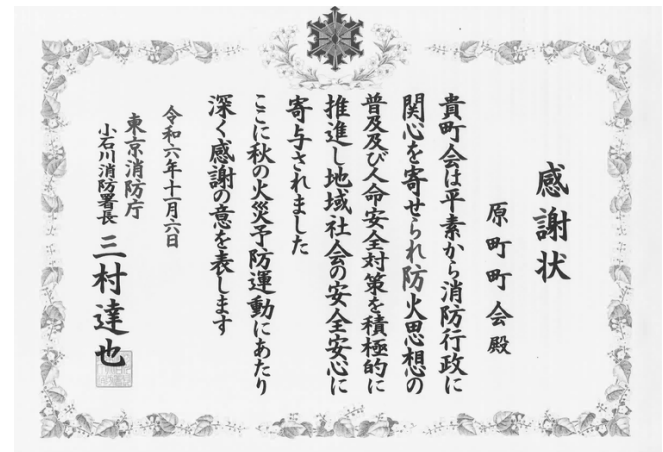 感謝状
原町町会殿
貴町会は平素から消防行政に
関心を寄せられ防火思想の
普及及び人命安全対策を積極的に
推進し地域社会の安全安心に
寄与されました
ここに秋の火災予防運動にあたり
深く感謝の意を表します
令和六年十一月六日
東京消防庁
小石川消防署長 三村達也